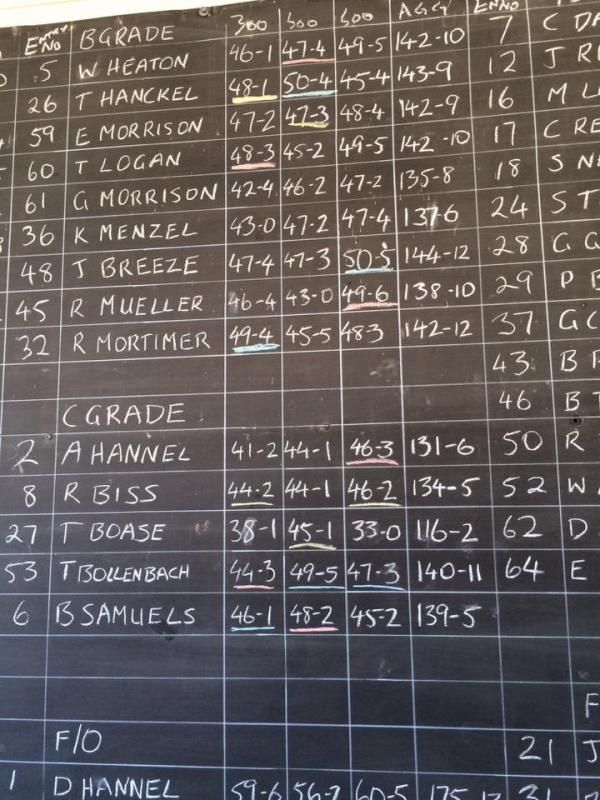 ENTRY NO B GRADE 300 500 600 AGG EN NO
5 W HEATON 46-1 47-4 49-5 142-10 7 C
26 T HANCKEL 48-1 50-4 45-4 143-9 12 J
59 E MORRISON 47-2 47-3 48-4 142-9 16 M
60 T LOGAN 48-3 45-2 49-5 142-10 17 C
61 G MORRISON 42-4 46-2 47-2 135-8 18 S
36 K MENZEL 43-0 47-2 47-4 137-6 24 S
48 J BREEZE 47-4 47-3 50-5 144-12 28 G
45 R MUELLER 46-4 43-0 49-6 138-10 29 P
32 R MORTIMER 49-4 45-5 48-3 142-12 37 G
43 B
C GRADE 46 B
2 A HANNEL 41-2 44-1 46-3 131-6 50 R
8 R BISS 44-2 44-1 46-2 134-5 52 W
27 T BOASE 38-1 45-1 33-0 116-2 62 D
53 T BOLLENBACH 44-3 49-5 47-3 140-11 64 E
6 B SAMUELS 46-1 48-2 45-2 139-5
F
F/O 21 J
1 D HANNEL 59-6 60-5 31